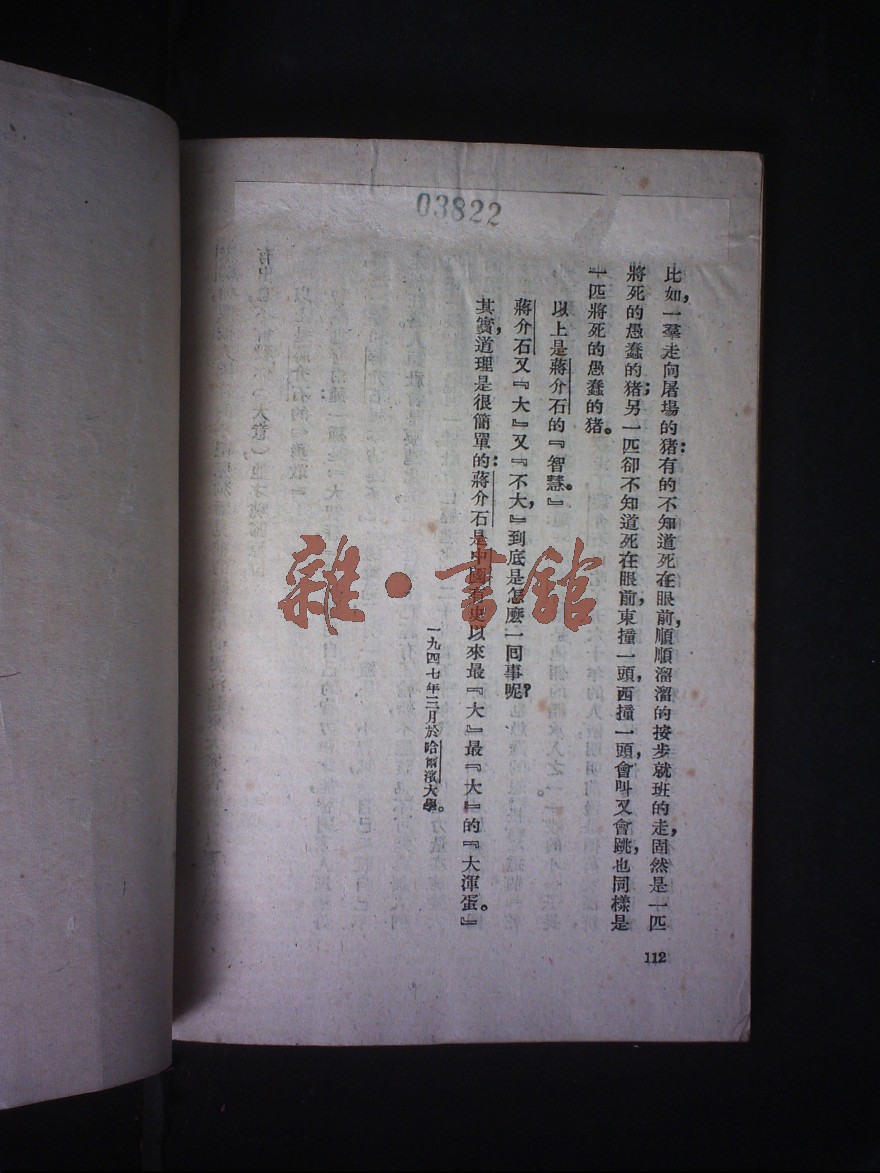 03822
比如，一羣走向屠場的猪：有的不知道死在眼前，順順溜溜的按步就班的走，固然是一匹
將死的愚蠢的猪；另一匹卻不知道死在眼前，東撞一頭，西撞一頭，會叫又會跳，也同樣是
一匹將死的愚蠢的猪。
以上是蔣介石的『智慧』。
蔣介石又『大』又『不大』，到底是怎麼一囘事呢？
其實，道理是很簡單的：蔣介石是中國有史以來最『大』最『大』的『大渾蛋』。
一九四七年三月於哈爾濱大學。
112
雜·書館